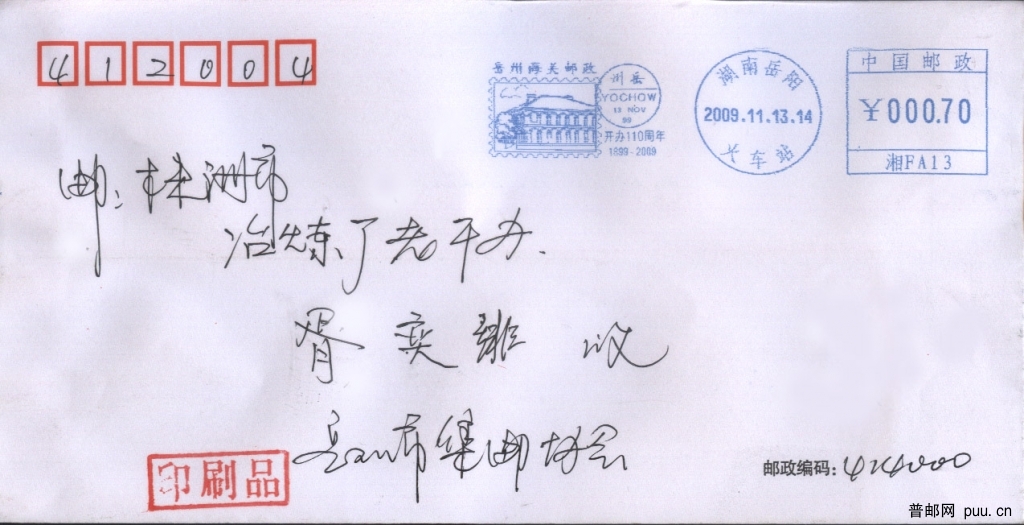 412004
岳州海关邮政
州岳
YOCHOW
13 NOV
99
开办110周年
1899-2009
湖南岳阳
2009.11.13.14
长车站
中国邮政
¥000.70
湘FA13
邮：株洲市
冶炼厂老干办.
胥奕 收
岳阳市集邮协会
印刷品
邮政编码：414000
普邮网 puu.cn